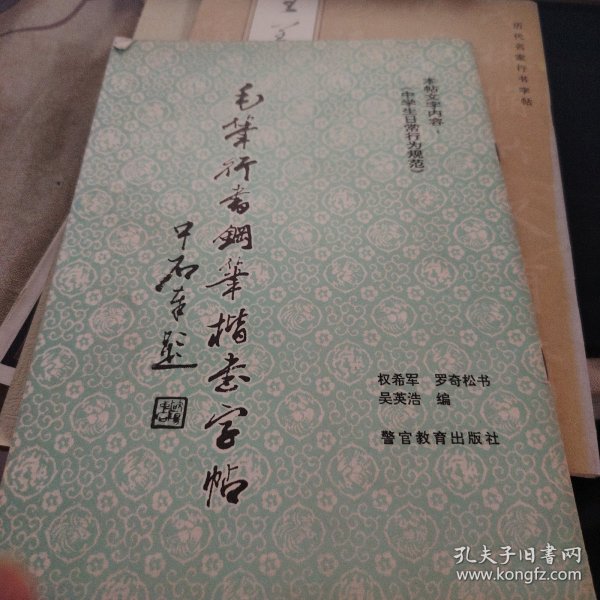 本帖文字内容：
《中学生日常行为规范》
毛笔行书钢笔楷书字帖
中石奉题
权希军 罗奇松书
吴英浩 编
警官教育出版社
历代名家行书字帖
孔夫子旧书网
www.kongfz.com